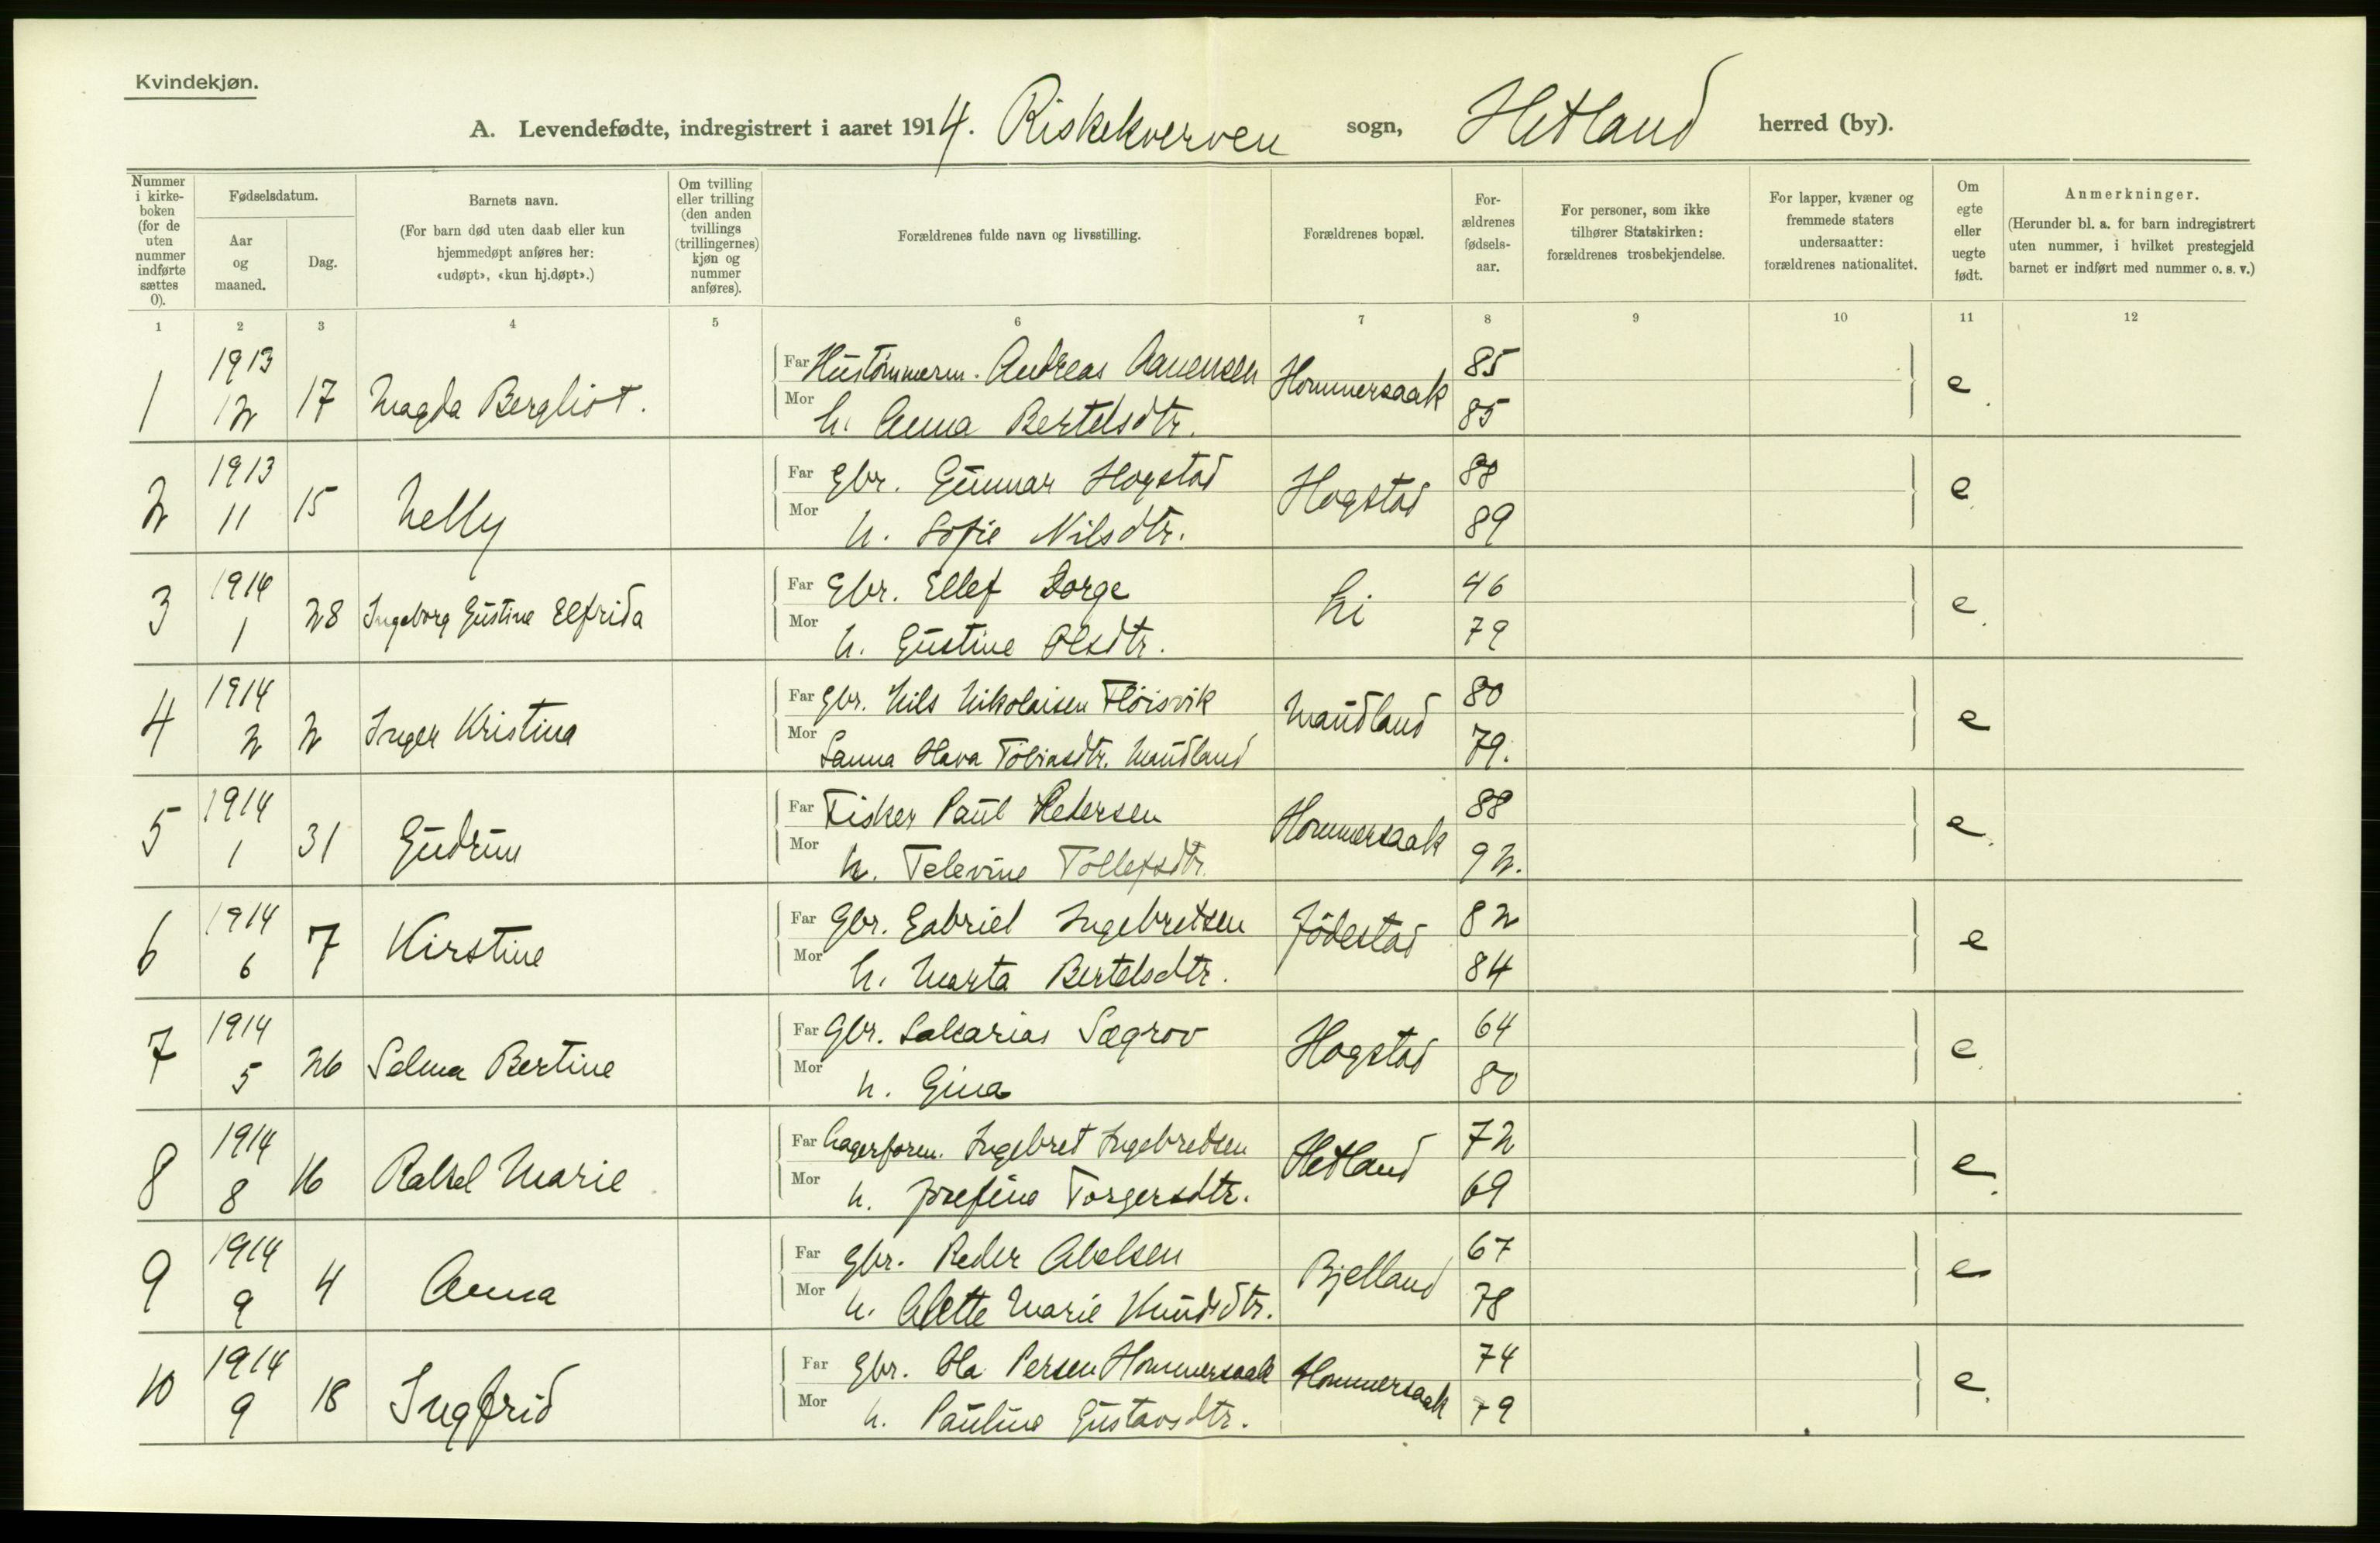 Kvindekjøn.
A. Levendefødte, indregistrert i aaret 1914. Riskekverven sogn, Hetland herred (by).
Nummer i kirkeboken (for de uten nummer indførte sættes 0).
Fødselsdatum.
Aar og maaned.
Dag.
Barnets navn.
(For barn død uten daab eller kun hjemmedøpt anføres her: «udøpt», «kun hj.døpt».)
Om tvilling eller trilling (den anden tvillings (trillingernes) kjøn og nummer anføres).
Forældrenes fulde navn og livsstilling.
Forældrenes bopæl.
Forældrenes fødselsaar.
For personer, som ikke tilhører Statskirken: forældrenes trosbekjendelse.
For lapper, kvæner og fremmede staters undersaatter: forældrenes nationalitet.
Om egte eller uegte født.
Anmerkninger.
(Herunder bl. a. for barn indregistrert uten nummer, i hvilket prestegjeld barnet er indført med nummer o. s. v.)
1 2 3 4 5 6 7 8 9 10 11 12
1 1913 12 17 Magda Bergliot. Far Hustømmerm. Andreas Aanensen Hommersaak 85 e.
Mor h. Anna Bertelsdtr. 85
2 1913 11 15 Nelly Far Gbr. Gunnar Hogstad Hogstad 88 e
Mor h. Sofie Nilsdtr. 89
3 1914 1 28 Ingeborg Gustine Elfrida Far Gbr. Ellef Dorge Li 46 e.
Mor h. Gustine Olsdtr. 79
4 1914 2 2 Inger Kristina Far Gbr. Nils Nikolaisen Fløisvik Maudland 80 e
Mor Sanna Olava Tobiasdtr. Maudland 79.
5 1914 1 31 Gudrun Far Fisker Paul Pedersen Hommersaak 88 e.
Mor h. Televine Tollefsdtr. 92.
6 1914 6 7 Kirstine Far Gbr. Gabriel Ingebretsen Jødestad 82 e
Mor h. Marta Bertelsdtr. 84
7 1914 5 26 Selma Bertine Far Gbr. Sakarias Sægrov Hogstad 64 e.
Mor h. Gina 80
8 1914 8 16 Rakel Marie Far Lagerform. Ingebret Ingebretsen Hetland 72 e.
Mor h. Josefine Torgersdtr. 69
9 1914 9 4 Anna Far Gbr. Peder Abelsen Bjelland 67 e
Mor h. Alette Marie Knudsdtr. 78
10 1914 9 18 Ingfrid Far Gbr. Ola Persen Hommersaak Hommersaak 74 e.
Mor h. Pauline Gustavsdtr. 79